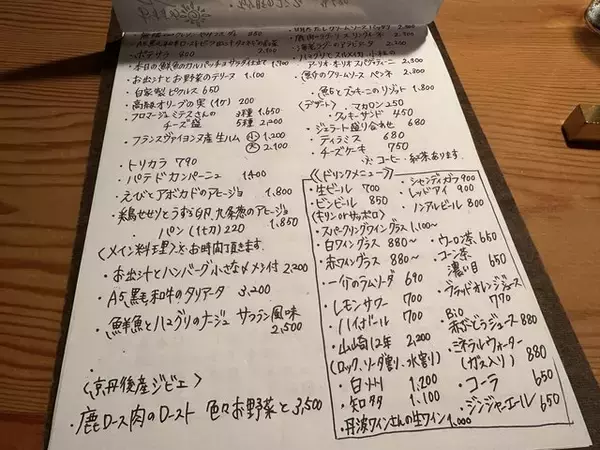 ポテサラ 880
・本日の鮮魚のカルパッチョ サラダ仕立て 1,700
・お出汁とお野菜のテリーヌ 1,100
・自家製ピクルス 650
・高級オリーブの実(1ケ) 200
・フロマージュミテスさんの
チーズ盛
3種 1,650
5種 2,200
・フランスヴァイヨンヌ産生ハム 小 1,200
大 2,100
・トリカラ 790
・パテドカンパーニュ 1,400
・えびとアボカドのアヒージョ 1,800
九条葱のアヒージョ 1,850
・パン(1ヶ) 220
〈メイン料理〉お時間頂きます。
・お出汁とハンバーグ小さな〆メシ付 2,200
・A5黒毛和牛のタリアータ 3,200
・鮮魚とハマグリのナージュ サフラン風味
2,500
〈京丹後産ジビエ〉
・鹿ロース肉のロースト 色々お野菜と 3,500
アーリオ・オーリオスパゲッティーニ 2,300
クリームソース ペンネ 2,300
・魚介とズッキーニのリゾット 1,800
〈デザート〉・マカロン 250
・クッキーサンド 450
・ジェラート盛り合わせ 680
・ティラミス 680
・チーズケーキ 750
※コーヒー・紅茶あります。
〈ドリンクメニュー〉
・生ビール 700
・ビンビール 850
(キリンorサッポロ)
・スパークリングワイングラス 1,100〜
・白ワイングラス 880〜
・赤ワイングラス 880〜
・一介のラムソーダ 690
・レモンサワー 700
・ハイボール 700
・山崎12年 2,200
(ロック、ソーダ割り、水割り)
・白州 1,200
・知多 1,100
・丹波ワインさんの生ワイン 1,000
・シャンディガフ 900
・レッドアイ 900
・ノンアルビール 800
・ウーロン茶 650
・コーン茶
濃い目 650
・ブラッドオレンジジュース
770
・Bio
赤ぶどうジュース 880
・ミネラルウォーター
(ガス入り) 880
・コーラ 650
・ジンジャーエール 650